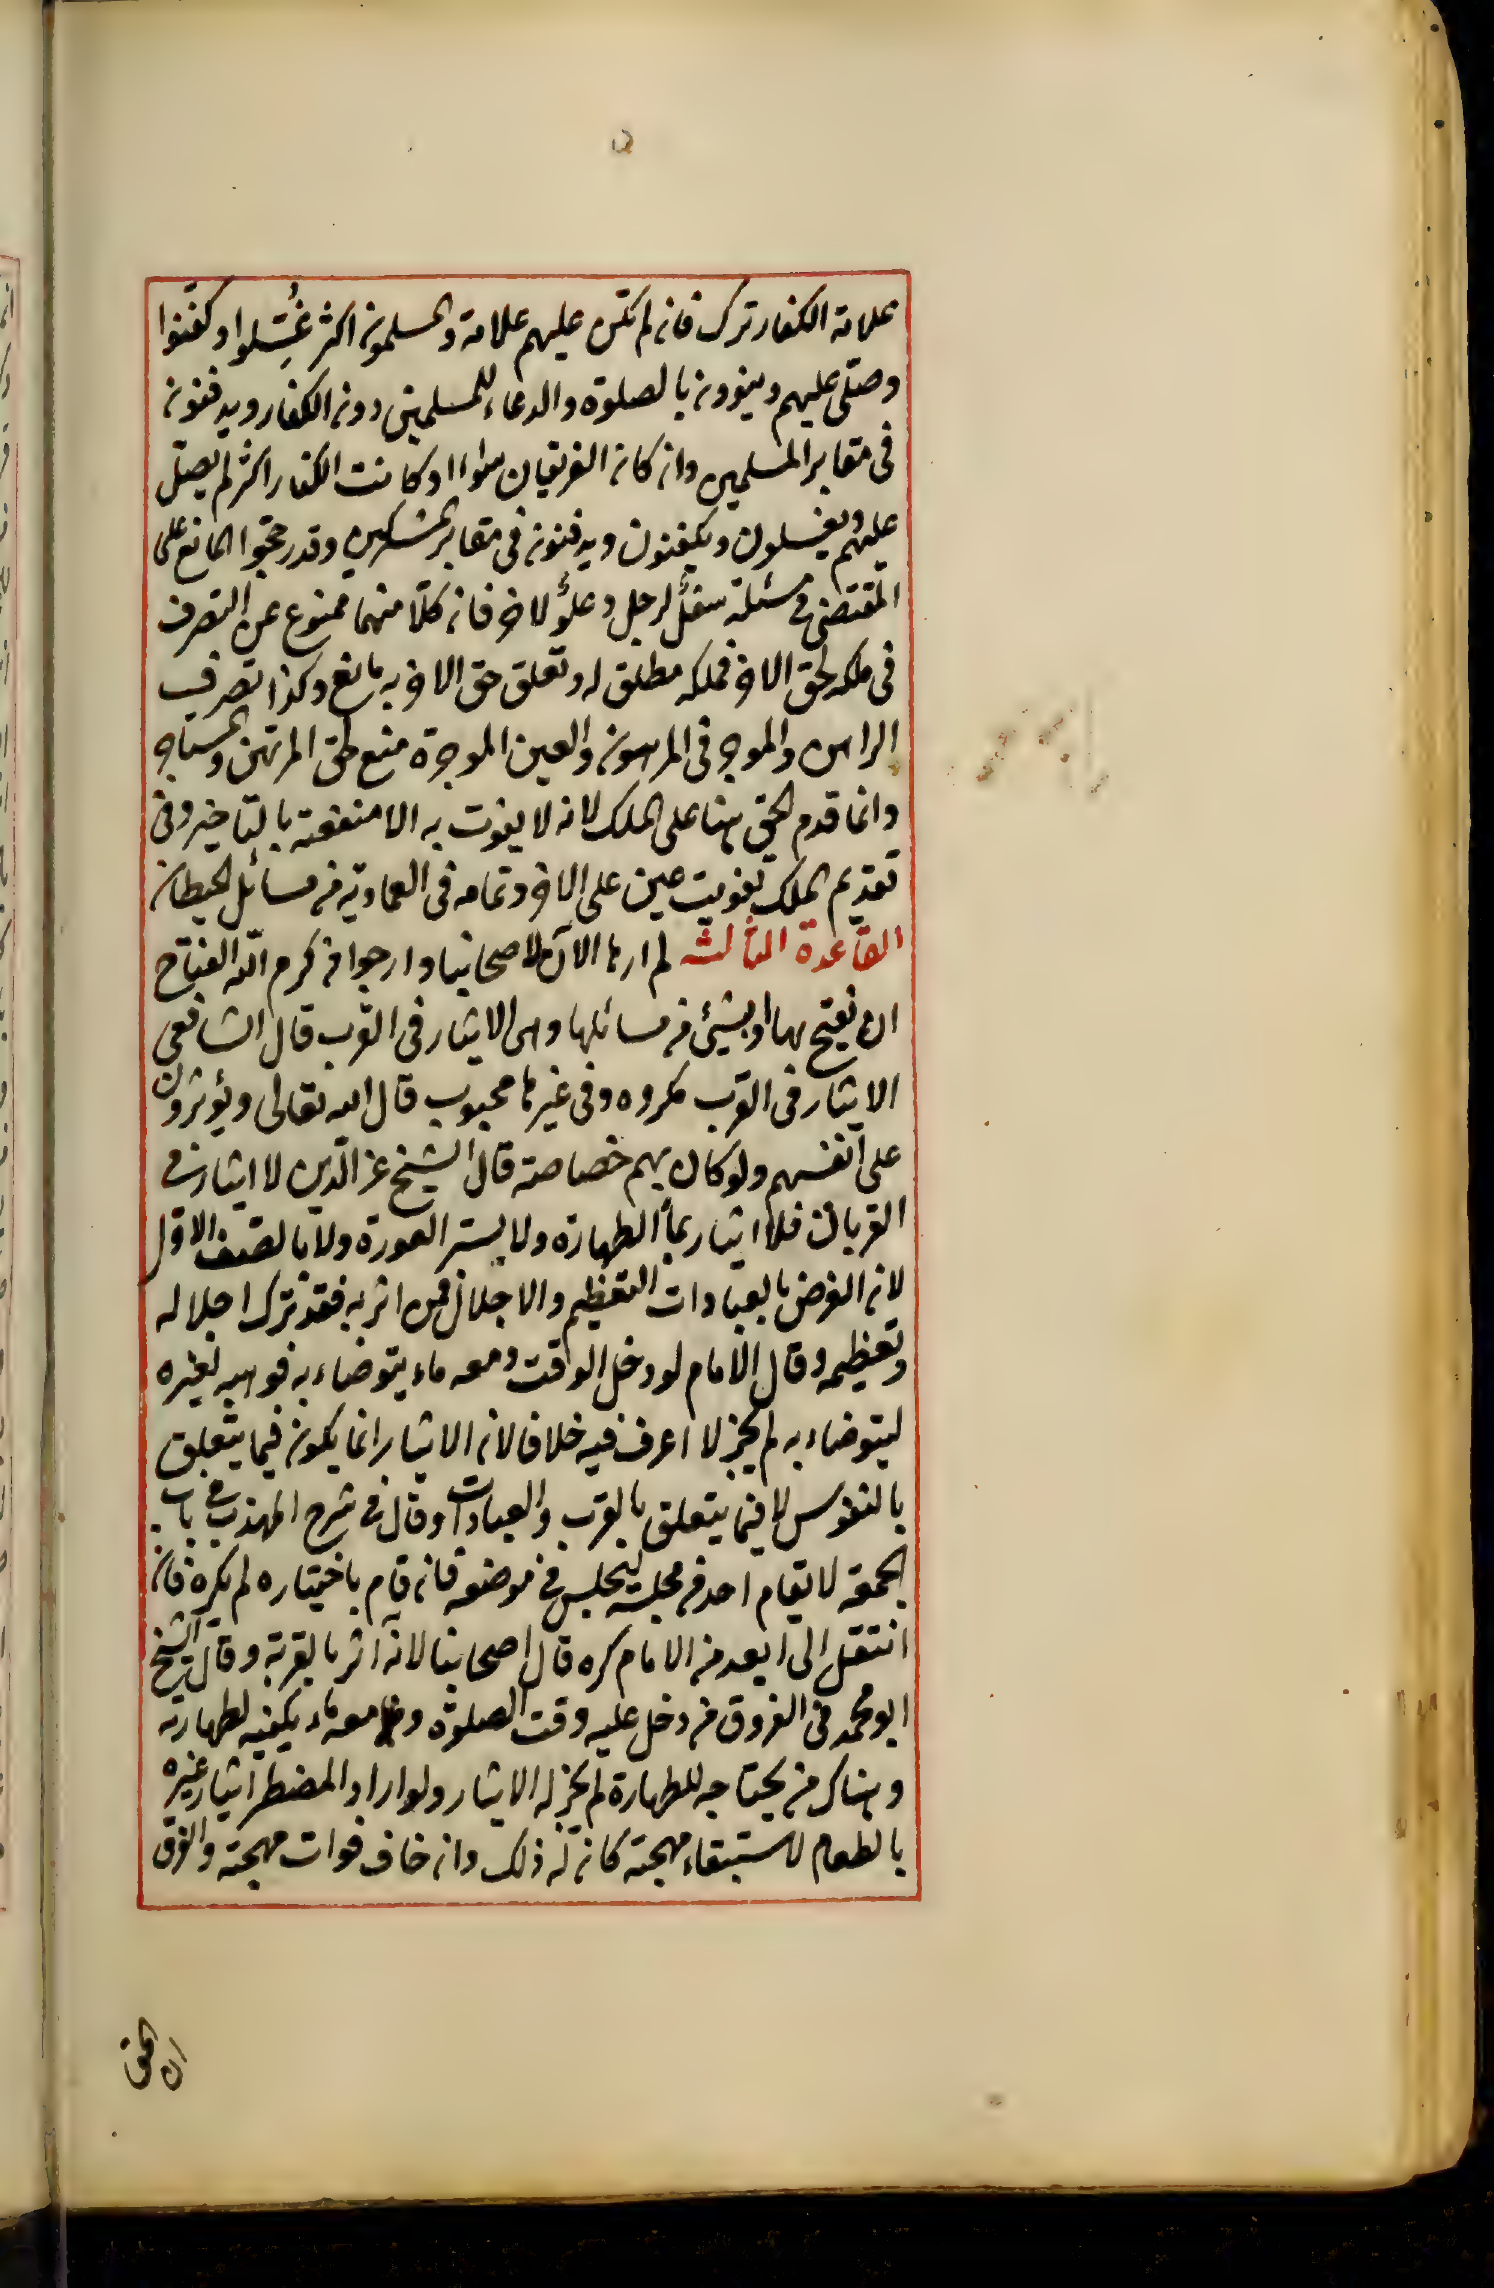 علامة الكفار ترك فان لم تكن عليهم علامة والمسلمون اكثر غُسِّلوا وكفّنوا
وصلّى عليهم وينوون بالصلوة والدعاء للمسلمين دون الكفار ويدفنون
فى مقابر المسلمين وان كان الفريقان سواا اوكانت الكفار اكثر لم يصلّ
عليهم ويغسلون ويكفنون ويدفنون فى مقابر المشركين وقد رجحوا المانع على
المقتضى فى مسئلة سفل لرجل وعلوٌ لاخر فان كلّا منهما ممنوع عن التصرف
فى ملكه لحق الاخر فملكه مطلق له وتعلق حق الاخر به مانع وكذا تصرف
الراهن والموجر فى المرهون والعين الموجرة منع لحق المرتهن والمستاجر
وانما قدم الحق هنا على الملك لانه لا يفوت به الا منفعته بالتاخير وفى
تقديم الملك تفويت عين على الاخر وتمامه فى العمادية من مسائل الحيطان
القاعدة الثالثة لم ارها الآن لاصحابنا وارجوا من كرم الله الفتاح
ان يفتح بها او بشيئ من مسائلها وهى الايثار فى القرب قال الشافعى
الايثار فى القرب مكروه وفى غيرها محبوب قال الله تعالى ويؤثرون
على انفسهم ولو كان بهم خصاصة قال الشيخ عز الدين لا ايثار فى
القربات فلا ايثار بماء الطهارة ولا بستر العورة ولا بالصف الاول
لان الغرض بالعبادات التعظيم والاجلال فمن اثر به فقد ترك اجلاله
وتعظيمه وقال الامام لو دخل الوقت ومعه ماء يتوضاء به فوهبه لغيره
ليتوضاء به لم يجز لا اعرف فيه خلافا لان الايثار انما يكون فيما يتعلق
بالنفوس لا فيما يتعلق بالقرب والعبادات وقال فى شرح المهذب فى باب
الجمعة لا يقام احد من مجلسه ليجلس فى موضعه فان قام باختياره لم يكره فان
انتقل الى ابعد من الامام كره قال اصحابنا لانه آثر بالقربة وقال الشيخ
ابو محمد فى الفروق من دخل عليه وقت الصلوة ومعه ماء يكفيه لطهارته
وهناك من يحتاجه للطهارة لم يجز له الايثار ولو اراد المضطر ايثار غيره
بالطعام لاستبقاء مهجته كان له ذلك وان خاف فوات مهجته والفرق
ان الحق